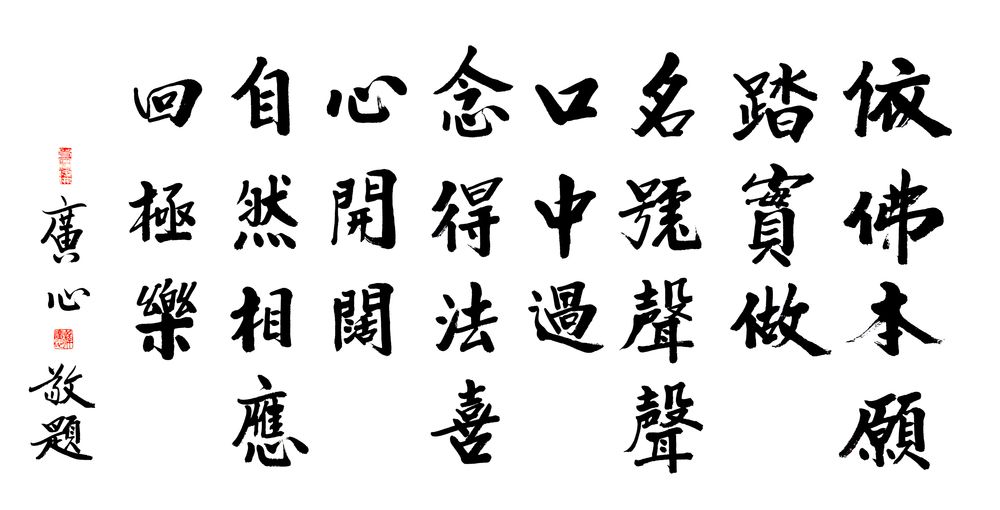 依佛本願
踏實做
名號聲聲
口中過
念得法喜
心開闊
自然相應
回極樂
廣心敬題